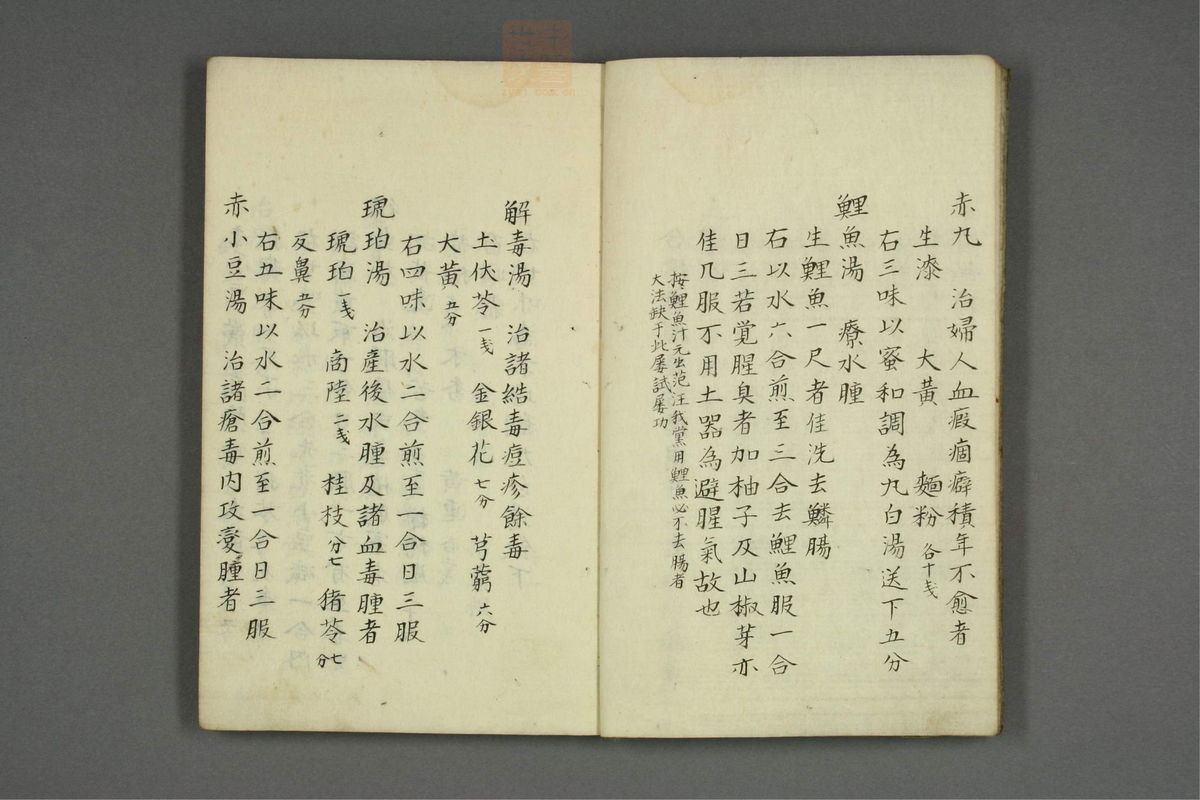 赤丸　治婦人血瘕痼癖積年不愈者
生漆　大黃　麵粉 各十戔
右三味以蜜和調為丸白湯送下五分
鯉魚湯　療水腫
生鯉魚一尺者佳洗去鱗腸
右以水六合煎至三合去鯉魚服一合
日三若覚腥臭者加柚子及山椒芽亦
佳凡服不用土器為避腥氣故也
按鯉魚汁元出范汪我黨用鯉魚必不去腸者
大法缺于此屡試屡功
解毒湯　治諸結毒痘疹餘毒
土伏苓 一戔　金銀花 七分　芎藭 六分
大黃 五分
右四味以水二合煎至一合日三服
琥珀湯　治產後水腫及諸血毒腫者
琥珀 一戔　商陸 二戔　桂枝 七分　猪苓 七分
反鼻 五分
右五味以水二合煎至一合日三服
赤小豆湯　治諸瘡毒内攻変腫者